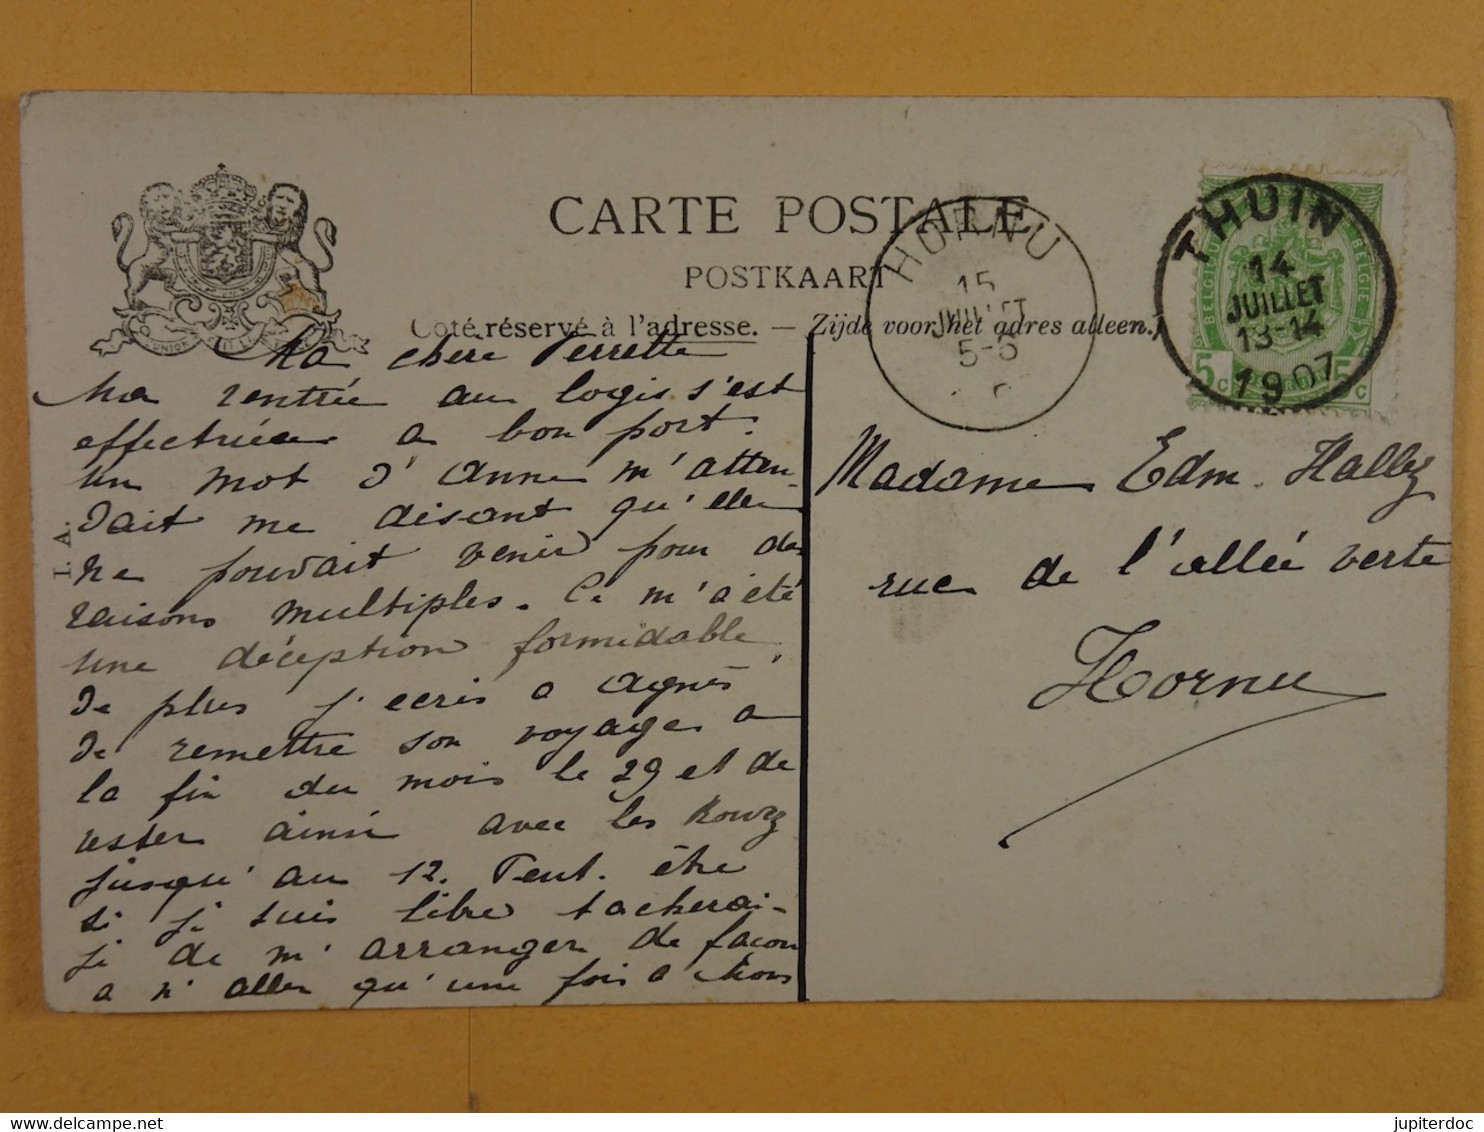 CARTE POSTALE
POSTKAART
Côté réservé à l'adresse. — Zijde voor het adres alleen.
HORNU
15
JUILLET
5-6
THUIN
14
JUILLET
13-14
1907
5 c
5 c
I. A.
Ma chère Perrette
Ma rentrée au logis s'est
effectuée a bon port.
Un mot d'Anne m'atten-
dait me disant qu'elle
ne pouvait venir pour des
raisons multiples. Ce m'a été
une déception formidable.
De plus j'ecris a Agnès
de remettre son voyage a
la fin du mois le 29 et de
rester ainsi avec les
jusqu'au 12. Peut. être
si je suis libre tacherai-
je de m'arranger de façon
a n'aller qu'une fois a Mons
Madame Edm. Hallez
rue de l'allée verte
Hornu
jupiterdoc